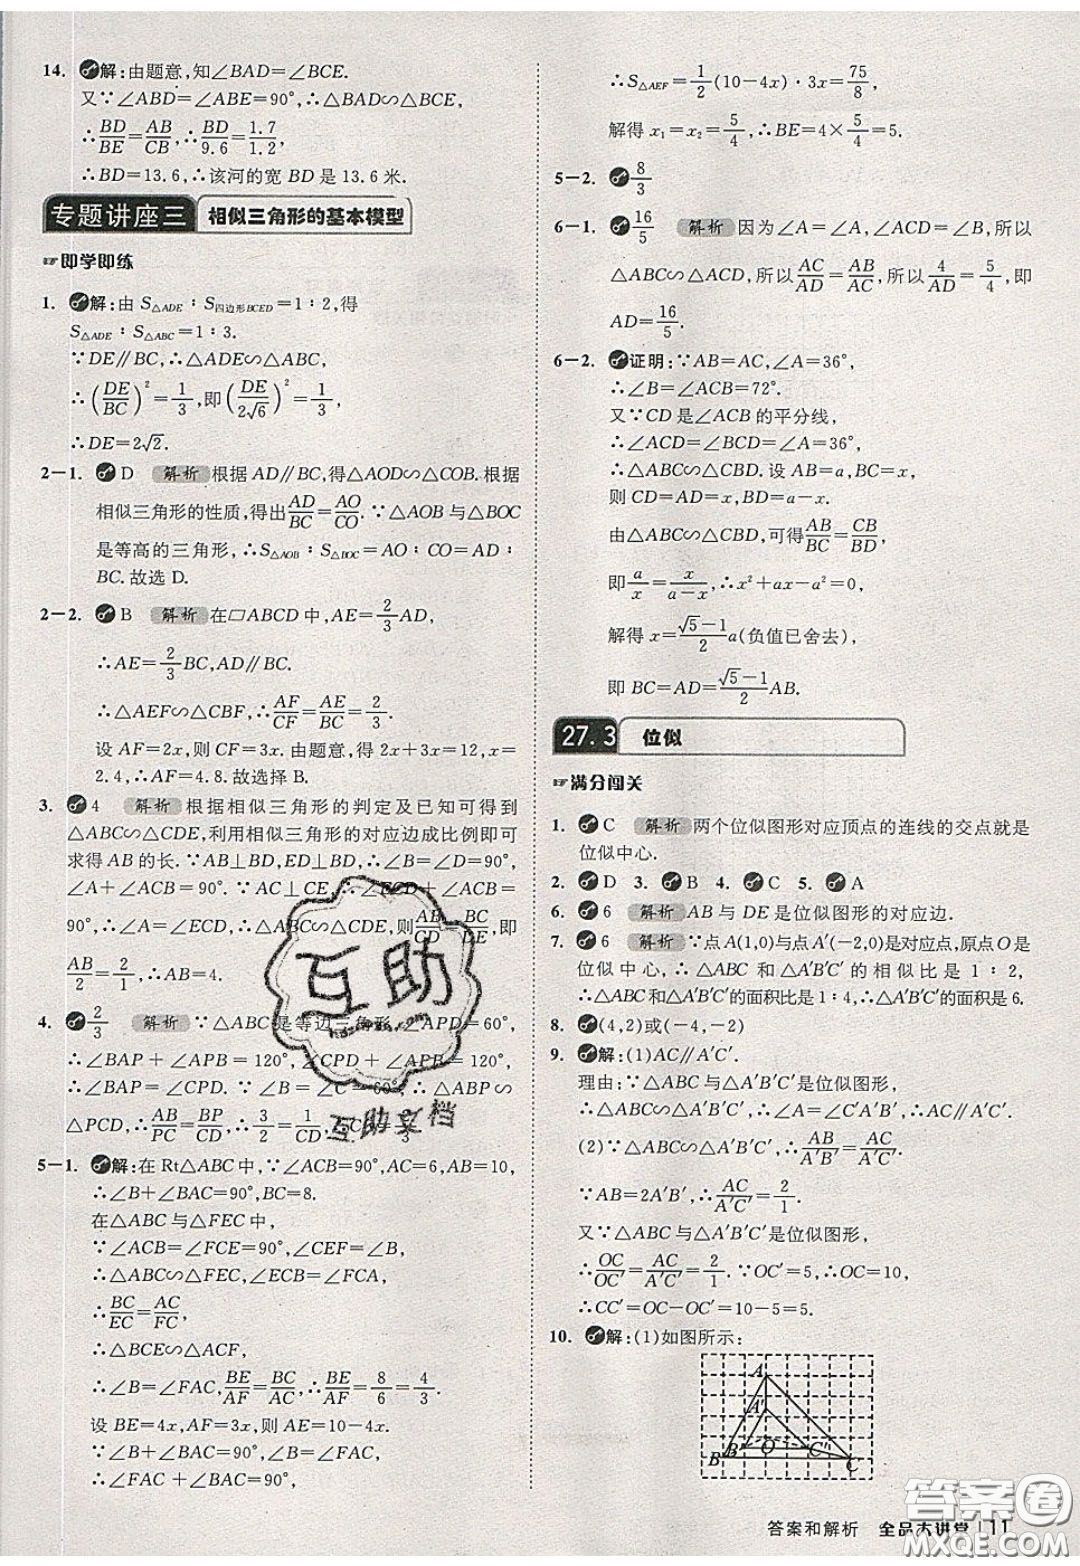 14. 解:由题意,知∠BAD=∠BCE.
又∵∠ABD=∠ABE=90°,∴△BAD∽△BCE,
∴BD/BE=AB/CB,∴BD/9.6=1.7/1.2,
∴BD=13.6,∴该河的宽BD是13.6米.
专题讲座三 相似三角形的基本模型
☞即学即练
1. 解:由S△ADE∶S四边形BCED=1∶2,得
S△ADE∶S△ABC=1∶3.
∵DE∥BC,∴△ADE∽△ABC,
∴(DE/BC)²=1/3,即(DE/2√6)²=1/3,
∴DE=2√2.
2-1. D 解析 根据AD∥BC,得△AOD∽△COB.根据
相似三角形的性质,得出AD/BC=AO/CO.∵△AOB与△BOC
是等高的三角形,∴S△AOB∶S△BOC=AO∶CO=AD∶
BC.故选D.
2-2. B 解析 在▱ABCD中,AE=2/3AD,
∴AE=2/3BC,AD∥BC.
∴△AEF∽△CBF,∴AF/CF=AE/BC=2/3.
设AF=2x,则CF=3x.由题意,得2x+3x=12,解得x=
2.4,∴AF=4.8.故选择B.
3. 4 解析 根据相似三角形的判定及已知可得到
△ABC∽△CDE,利用相似三角形的对应边成比例即可
求得AB的长.∵AB⊥BD,ED⊥BD,∴∠B=∠D=90°,
∠A+∠ACB=90°.∵AC⊥CE,∴∠ECD+∠ACB=
90°,∴∠A=∠ECD,∴△ABC∽△CDE,则AB/CD=BC/DE,即
AB/2=2/1,∴AB=4.
4. 2/3 解析 ∵△ABC是等边三角形,∠APD=60°,
∴∠BAP+∠APB=120°,∠CPD+∠APB=120°,
∴∠BAP=∠CPD.∵∠B=∠C=60°,∴△ABP∽
△PCD,∴AB/PC=BP/CD,∴3/2=1/CD,∴CD=2/3.
5-1. 解:在Rt△ABC中,∵∠ACB=90°,AC=6,AB=10,
∴∠B+∠BAC=90°,BC=8.
在△ABC与△FEC中,
∵∠ACB=∠FCE=90°,∠CEF=∠BAC,
∴△ABC∽△FEC,∠ECA=∠BCF,
∴BC/EC=AC/FC,
∴△BCE∽△ACF,
∴∠B=∠FAC,BE/AF=BC/AC,∴BE/AF=8/6=4/3.
设BE=4x,AF=3x,则AE=10-4x.
∵∠B=∠FAC,∠B+∠BAC=90°,
∴∠FAC+∠BAC=90°,
∴S△AEF=1/2(10-4x)·3x=75/8,
解得x₁=x₂=5/4,∴BE=4×5/4=5.
5-2. 8/3
6-1. 16/5 解析 因为∠A=∠A,∠ACD=∠B,所以
△ABC∽△ACD,所以AC/AD=AB/AC,所以4/AD=5/4,即
AD=16/5.
6-2. 证明:∵AB=AC,∠A=36°,
∴∠B=∠ACB=72°.
又∵CD是∠ACB的平分线,
∴∠ACD=∠BCD=∠A=36°,
∴△ABC∽△CBD.设AB=a,BC=x,
则CD=AD=x,BD=a-x.
由△ABC∽△CBD,可得AB/BC=CB/BD,
即a/x=x/(a-x),∴x²+ax-a²=0,
解得x=(√5-1)/2 a(负值已舍去),
即BC=AD=(√5-1)/2 AB.
27.3 位似
☞满分闯关
1. C 解析 两个位似图形对应顶点的连线的交点就是
位似中心.
2. D 3. B 4. C 5. A
6. 6 解析 AB与DE是位似图形的对应边.
7. 6 解析 ∵点A(1,0)与点A′(-2,0)是对应点,原点O是
位似中心,∴△ABC和△A′B′C′的相似比是1∶2,
∴△ABC和△A′B′C′的面积比是1∶4,∴△A′B′C′的面积是6.
8. (4,2)或(-4,-2)
9. 解:(1)AC∥A′C′.
理由:∵△ABC与△A′B′C′是位似图形,
∴△ABC∽△A′B′C′,∴∠A=∠C′A′B′,∴AC∥A′C′.
(2)∵△ABC∽△A′B′C′,∴AB/A′B′=AC/A′C′.
∵AB=2A′B′,∴AC/A′C′=2/1.
又∵△ABC与△A′B′C′是位似图形,
∴OC/OC′=AC/A′C′=2/1.∵OC′=5,∴OC=10,
∴CC′=OC-OC′=10-5=5.
10. 解:(1)如图所示:
A
A′
B B′ O C′ C
互助
互助文档
答案圈
MXQE.COM
答案和解析 全品大讲堂 11